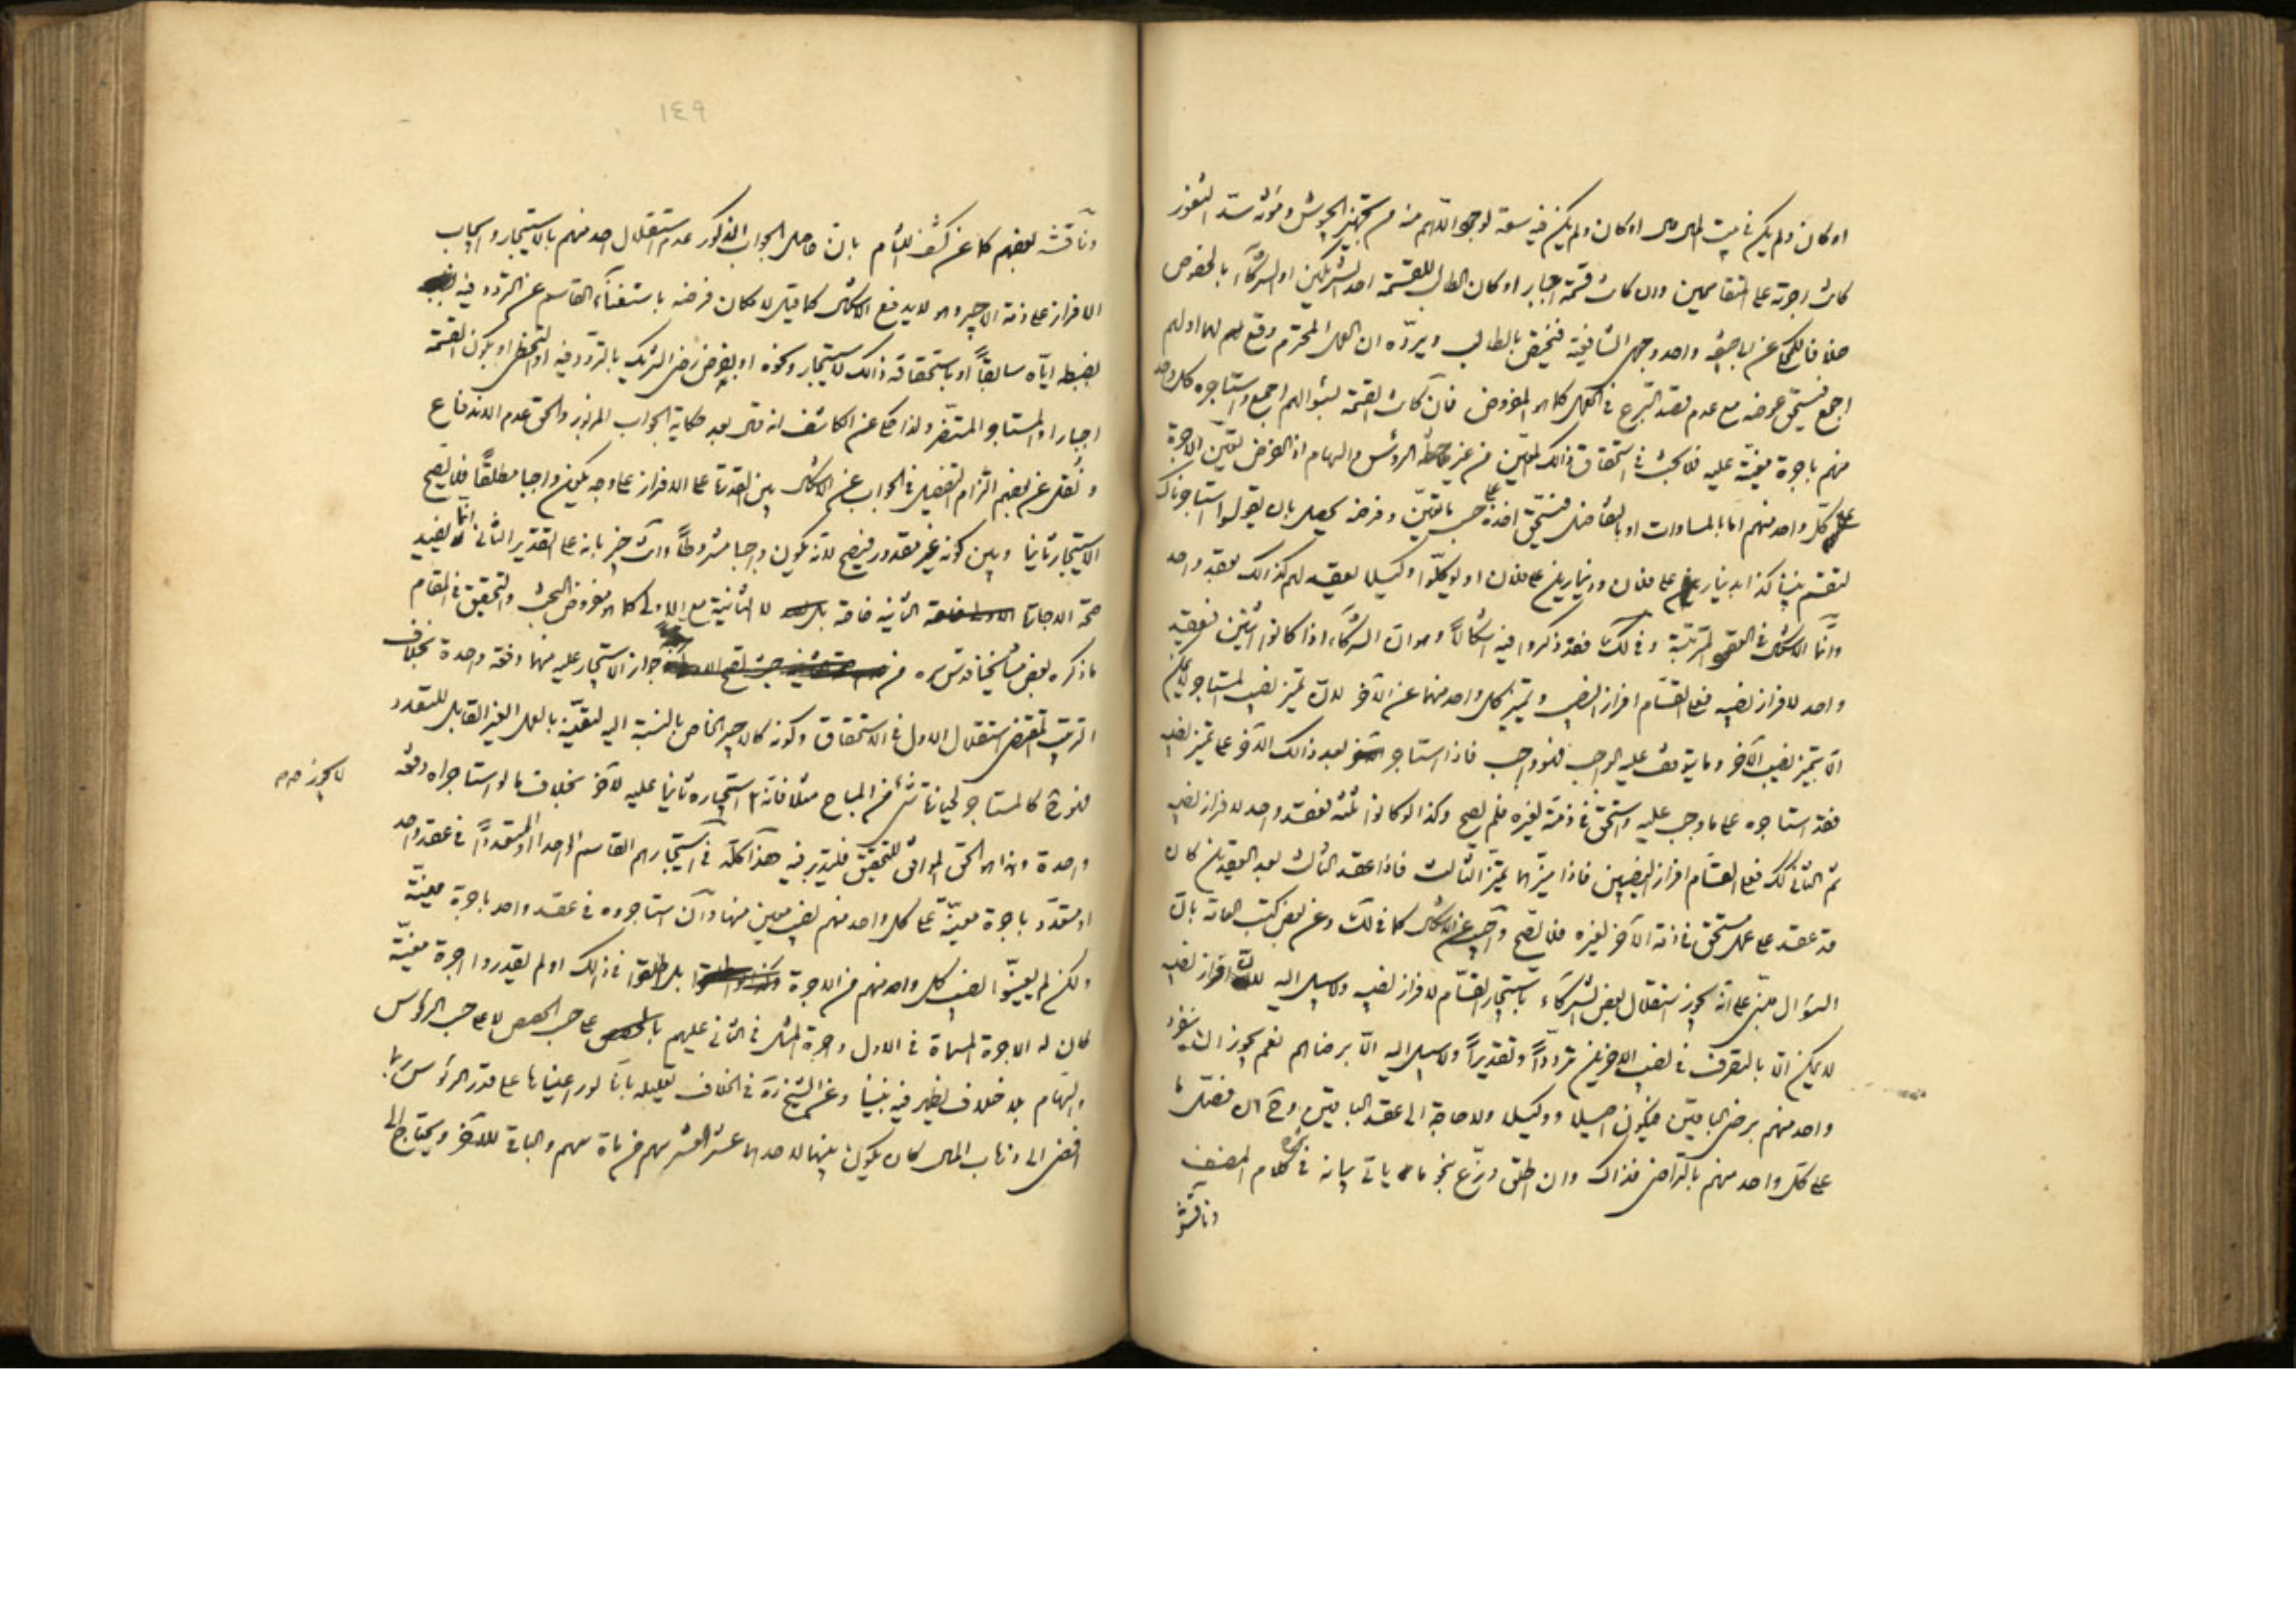 او كان ولم يكن في بيت المال مال او كان ولم يكن فيه سعة لوجود الاهم منه من تجهيز الجيوش ومؤنة سدّ الثغور
كانت اجرته على المتقاسمين وان كانت قسمة اجبار او كان الطالب للقسمة احد الشريكين او الشركاء بالخصوص
خلافا للمحكي عن ابي حنيفة واحد وجهي الشافعية فتختص بالطالب ويردّه ان العمل المحترم وقع لهما او لهم
اجمع فيستحق عوضه مع عدم قصد التبرع في العمل كما هو المفروض فان كانت القسمة بسؤالهم اجمع واستاجره كل واحد
منهم باجرة معيّنة عليه فلا بحث في استحقاق ذلك المعيّن من غير ملاحظة الرؤس والسهام اذ الفرض تعيّن الاجرة
على كل واحد منهم امّا بالمساوات او بالتفاضل فيستحق اخذه على حسب ما تعيّن وفرضه يحصل بان يقولوا استاجرناك
لتقسم بيننا كذا بدينار على فلان ودينارين على فلان او يوكلّوا وكيلا يعقد لهم كذلك بعقد واحد
وانّما الاشكال في العقود المترتّبة وفي لك فقد ذكروا فيه اشكالاً وهو انّ الشركاء اذا كانوا اثنين فعقد
واحد لافراز نصيبه فعلى القسّام افراز النصيبين وتمييز كل واحد منهما عن الآخر لانّ تميز نصيب المستاجر لا يمكن
الّا بتميز نصيب الآخر وما يتوقف عليه الواجب فهو واجب فاذا استاجر بعد ذلك الآخر على تميز نصيبه
فقد استاجره على ما وجب عليه واستحق في ذمته لغيره فلم يصح وكذا لو كانوا ثلثه فعقد واحد لافراز نصيبه
ثم الثاني كك فعلى القسّام افراز النصيبين فاذا ميّزهما تميّز الثالث فاذا عقد الثالث بعد العقدين كان
قد عقد على عمل مستحق في ذمة الآخر لغيره فلا يصح واجيب عن الاشكال كما في لك وعن بعض كتب العامة بانّ
السؤال مبنيّ على انّه يجوز استقلال بعض الشركاء باستيجار القسّام لافراز نصيبه ولا سبيل اليه لانّ افراز نصيبه
لا يمكن الّا بالتصرف في نصيب الآخرين تردّداً وتقديراً ولا سبيل اليه الّا برضاهم نعم يجوز ان ينفرد
واحد منهم برضى الباقين فيكون اصيلا ووكيلا ولا حاجة الى عقد الباقين وح ان فصّل ما
على كل واحد منهم بالتراضي فذاك وان اطلق وزّع بنحو ما ياتي بيانه في كلام المصنف
وناقشه
١٤٩
وناقشه بعضهم كما عن كشف اللثام بانّ حاصل الجواب المذكور عدم استقلال احد منهم بالاستيجار وايجاب
الافراز على ذمة الاجير وهو لا يدفع الاشكال كما قيل لامكان فرضه باستغناء القاسم عن التردد فيه
بضبطه ايّاه سابقاً او باستحقاقه ذلك لاستيجار ونحوه او بفرض رضى الشريك بالتردد فيه او التخطّي او بكون القسمة
اجبارا والمستاجر المتضرّر ولذا حكى عن الكاشف انه قال بعد حكاية الجواب المزبور والحق عدم الاندفاع
ونُقل عن بعضهم التزام التفصيل في الجواب عن الاشكال بين القدرة على الافراز على وجه يكون واجبا مطلقاً فلا يصح
الاستيجار ثانيا وبين كونه غير مقدور فيصح لانّه يكون واجبا مشروطاً وانت خبير بانه على التقدير الثاني انما يفيد
صحّة الاجارة الثانية خاصّة لا الثانية مع الاولى كما هو مفروض البحث والتحقيق في المقام
ما ذكره بعض مشايخنا قدس سره من جواز الاستيجار عليه منهما دفعة واحدة بخلاف
الترتيب المقتضي استقلال الاول في الاستحقاق وكونه كالاجير الخاص بالنسبة اليه لتعيّنه بالعمل الغير القابل للتعدد
فهو ح كالمستاجر لحيازة شئ من المباح مثلا فانّه لا يجوز استيجاره ثانيا عليه لآخر بخلاف ما لو استاجراه دفعة
واحدة وهذا هو الحق الموافق للتحقيق فليتدبر فيه هذا كلّه في استيجارهم القاسم الواحد او المتعدداً في عقد واحد
او متعدّد باجرة معيّنة على كل واحد منهم نصيب معين منها وان استاجروه في عقد واحد باجرة معيّنة
ولكن لم يعيّنوا نصيب كل واحد منهم من الاجرة بل اطلقوا في ذلك او لم يقدروا اجرة معيّنة
كان له الاجرة المسماة في الاول واجرة المثل في الثاني عليهم بالحصص على حسب الحصص لا على حسب الرؤس
والسهام بلا خلاف يظهر فيه بيننا وعن الشيخ ره في الخلاف تعليله بانّا لو راعيناها على قدر الرؤس ربما
افضى الى ذهاب المال كان يكون بينهما لاحدهما عشر العشر سهم من ماة سهم والباقي للآخر ويحتاج الى
لا يجوز صح